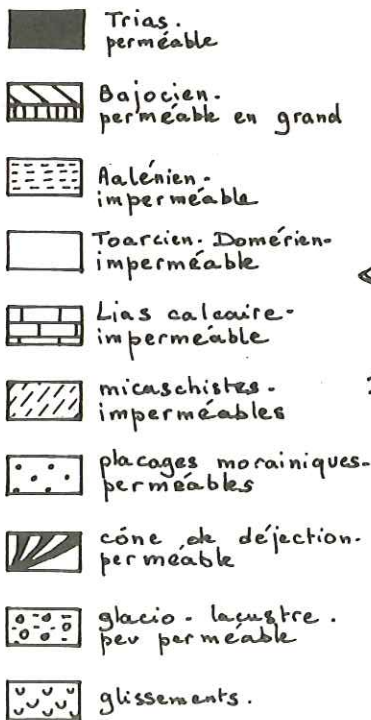 Trias.
perméable
Bajocien.
perméable en grand
Aalénien.
imperméable
Toarcien. Domérien.
imperméable
Lias calcaire.
imperméable
micaschistes.
imperméables
placages morainiques.
perméables
cône de déjection.
perméable
glacio-lacustre.
peu perméable
glissements.